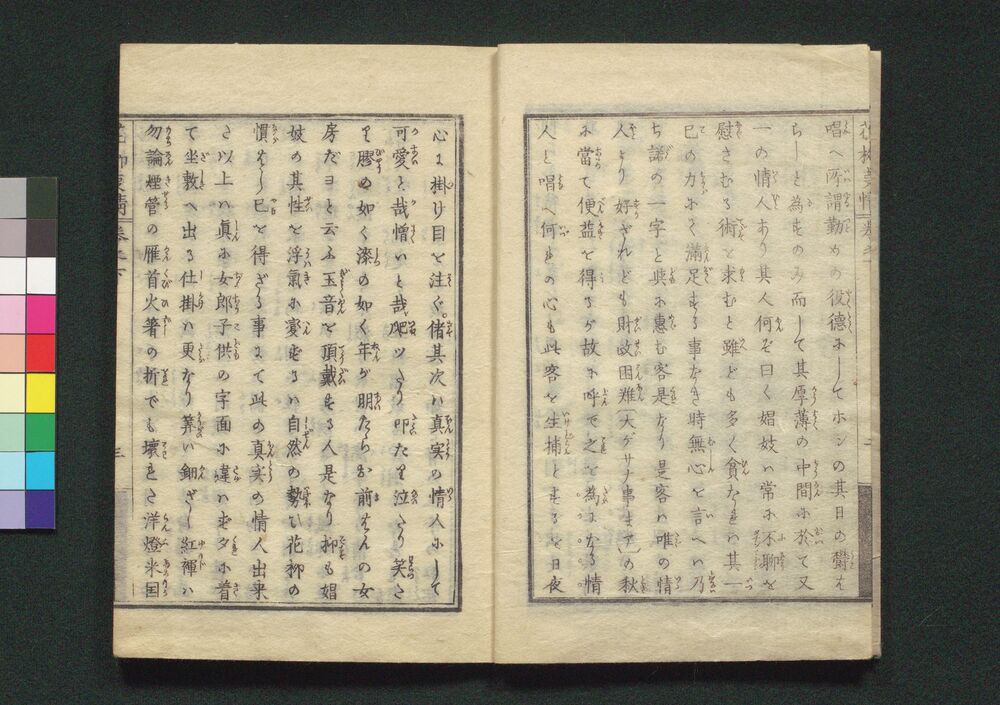 唱へ所謂勤めの役德にしてホンの其日の鬱は
らしと為すのみ而して其厚薄の中間に於て又
一の情人あり其人何ぞ曰く娼妓は常に不聊を
慰さむる術を求むと雖ども多く貧なれは其一
己の力にて滿足する事なき時無心を言へは乃
ち諾の一字を與に惠む客是なり是客は唯の情
人より好ざれども財故困難（大ゲサナ事まア）の秋
に當て便益を得るが故に呼で之を為になる情
人と唱へ何れの心も此客を生捕とするを日夜
心に掛け目を注ぐ偖其次は真実の情人にして
可愛と哉憎いと哉肥ツたり叩たり泣たり笑た
り膠の如く漆の如く年が明たらお前はんの女
房だヨと云ふ玉音を頂戴する人是なり抑も娼
妓の其性を浮氣に変ずるは自然の勢ひ花柳の
慣はし已を得ざる事にて此の真実の情人出来
た以上は眞に女郎子供の字面に違はず夕に着
て坐敷へ出る仕掛は更なり簪い釧ざし紅褌は
勿論煙管の雁首火箸の折でも壊れた洋燈米国